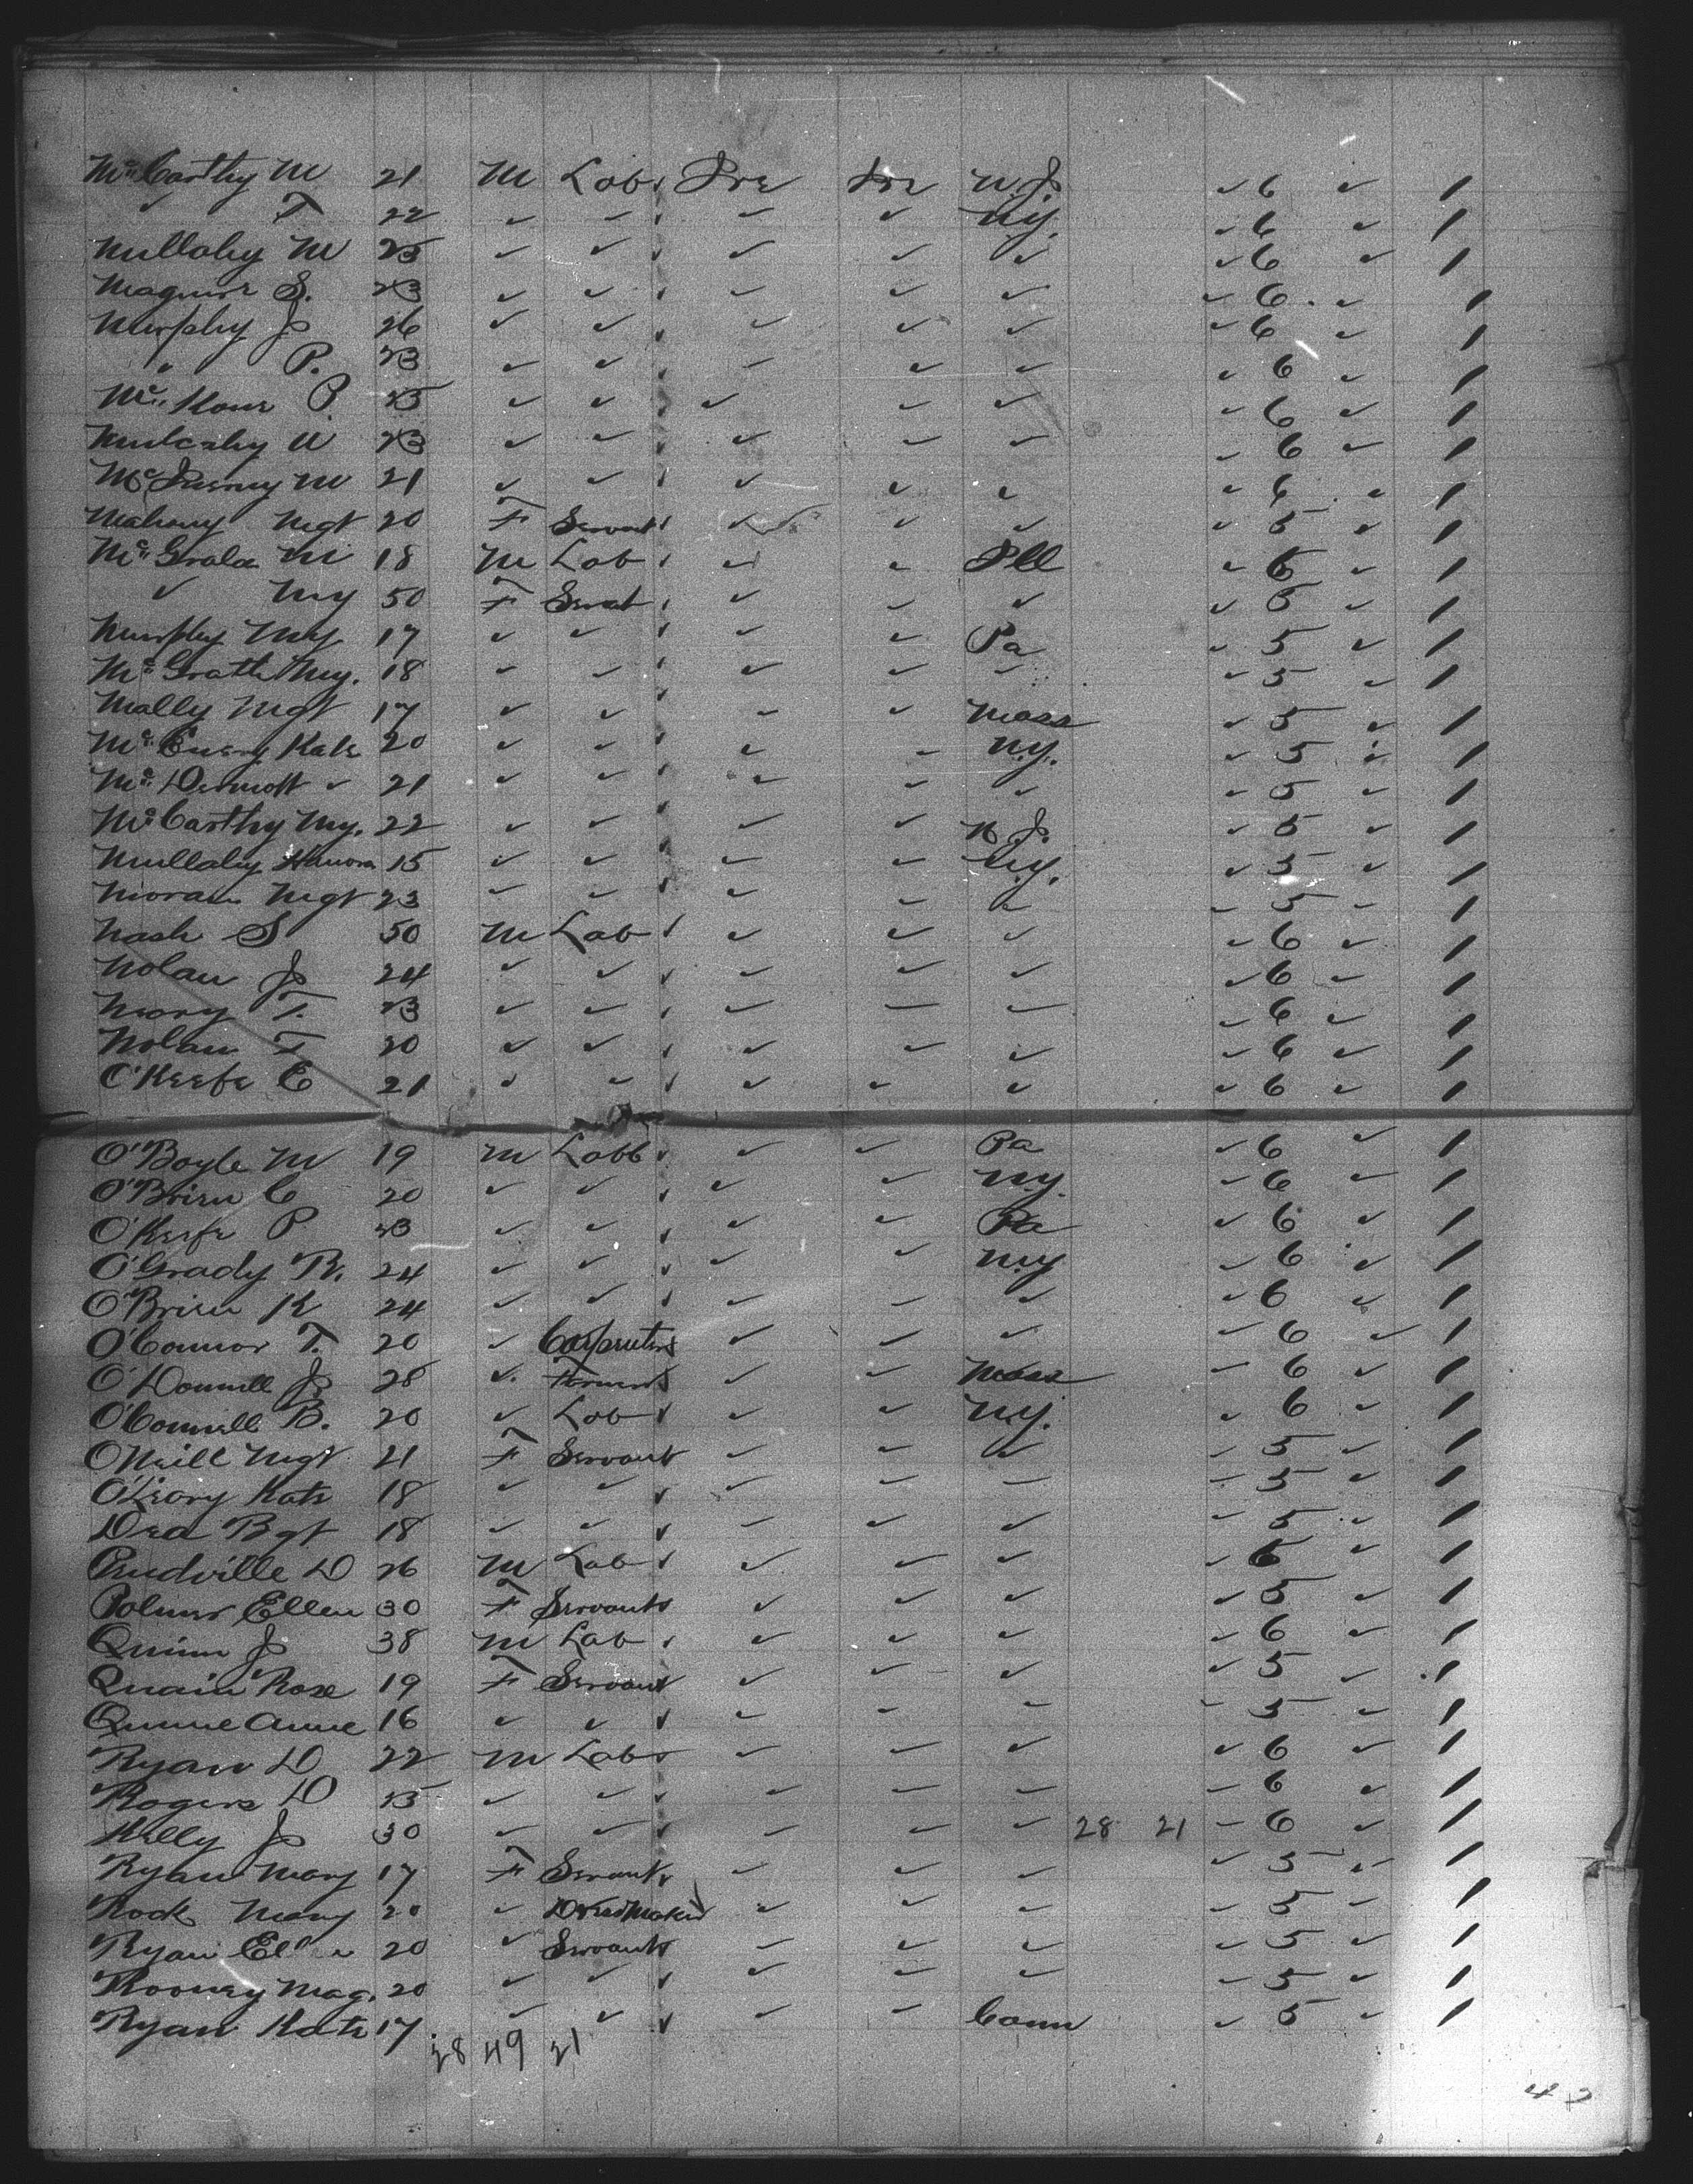 McCarthy M 21 M Lab Ire Ire N.J. ✓ 6 ✓ /
✓ T 22 ✓ ✓ ✓ ✓ N.Y. ✓ 6 ✓ /
Mullahy M 25 ✓ ✓ ✓ ✓ ✓ ✓ 6 ✓ /
Maguire S. 23 ✓ ✓ ✓ ✓ ✓ ✓ 6 ✓ /
Murphy J 26 ✓ ✓ ✓ ✓ ✓ ✓ 6 ✓ /
" P. 23 ✓ ✓ ✓ ✓ ✓ ✓ 6 ✓ /
McKone P. 25 ✓ ✓ ✓ ✓ ✓ ✓ 6 ✓ /
Mulcahy W 23 ✓ ✓ ✓ ✓ ✓ ✓ 6 ✓ /
M 21 ✓ ✓ ✓ ✓ ✓ ✓ 6 ✓ /
Mahony Mgt 20 F Servant ✓ ✓ ✓ ✓ 5 ✓ /
M 18 M Lab ✓ ✓ Ill ✓ 6 ✓ /
✓ My 50 F Servat ✓ ✓ ✓ ✓ 5 ✓ /
Murphy My 17 ✓ ✓ ✓ ✓ Pa ✓ 5 ✓ /
McGrath My. 18 ✓ ✓ ✓ ✓ ✓ ✓ 5 ✓ /
Mally Mgt 17 ✓ ✓ ✓ ✓ Mass ✓ 5 ✓ /
McEnery Kate 20 ✓ ✓ ✓ ✓ N.Y. ✓ 5 ✓ /
McDermott ✓ 21 ✓ ✓ ✓ ✓ ✓ ✓ 5 ✓ /
McCarthy My. 22 ✓ ✓ ✓ ✓ N.J. ✓ 5 ✓ /
Mullahy Hanora 15 ✓ ✓ ✓ ✓ N.Y. ✓ 5 ✓ /
Moran Mgt 23 ✓ ✓ ✓ ✓ ✓ ✓ 5 ✓ /
Nash S 50 M Lab ✓ ✓ ✓ ✓ 6 ✓ /
Nolan J 24 ✓ ✓ ✓ ✓ ✓ ✓ 6 ✓ /
T. 23 ✓ ✓ ✓ ✓ ✓ ✓ 6 ✓ /
Nolan T 20 ✓ ✓ ✓ ✓ ✓ ✓ 6 ✓ /
O'Keefe E 21 ✓ ✓ ✓ ✓ ✓ ✓ 6 ✓ /
O'Boyle M 19 M Labb ✓ ✓ Pa ✓ 6 ✓ /
O'Brien C 20 ✓ ✓ ✓ ✓ N.Y. ✓ 6 ✓ /
O'Keefe P 23 ✓ ✓ ✓ ✓ Pa ✓ 6 ✓ /
O'Grady R. 24 ✓ ✓ ✓ ✓ N.Y ✓ 6 ✓ /
O'Brien K 24 ✓ ✓ ✓ ✓ ✓ ✓ 6 ✓ /
O'Connor T. 20 ✓ Carpenter ✓ ✓ ✓ ✓ 6 ✓ /
O'Donnell J. 28 ✓ Farmer ✓ ✓ Mass ✓ 6 ✓ /
O'Connell B. 20 ✓ Lab ✓ ✓ N.Y. ✓ 6 ✓ /
O'Neill Mgt 21 F Servant ✓ ✓ ✓ ✓ 5 ✓ /
O'Leary Kate 18 ✓ ✓ ✓ ✓ ✓ ✓ 5 ✓ /
Dea Bgt 18 ✓ ✓ ✓ ✓ ✓ ✓ 5 ✓ /
Prudville D 26 M Lab ✓ ✓ ✓ ✓ 6 ✓ /
Palmer Ellen 30 F Servant ✓ ✓ ✓ ✓ 5 ✓ /
Quinn J 38 M Lab ✓ ✓ ✓ ✓ 6 ✓ /
Quain Rose 19 F Servant ✓ ✓ ✓ ✓ 5 ✓ /
Quinne Anne 16 ✓ ✓ ✓ ✓ ✓ ✓ 5 ✓ /
Ryan D 22 M Lab ✓ ✓ ✓ ✓ 6 ✓ /
Rogers D 25 ✓ ✓ ✓ ✓ ✓ ✓ 6 ✓ /
Kelly J 30 ✓ ✓ ✓ ✓ ✓ 28 21 ✓ 6 ✓ /
Ryan Mary 17 F Servant ✓ ✓ ✓ ✓ 5 ✓ /
Rock Mary 20 ✓ DressMaker ✓ ✓ ✓ ✓ 5 ✓ /
Ryan Ellen 20 ✓ Servant ✓ ✓ ✓ ✓ 5 ✓ /
Rooney Mag. 20 ✓ ✓ ✓ ✓ ✓ ✓ 5 ✓ /
Ryan Kate 17 ✓ ✓ ✓ ✓ Conn ✓ 5 ✓ /
28 49 21